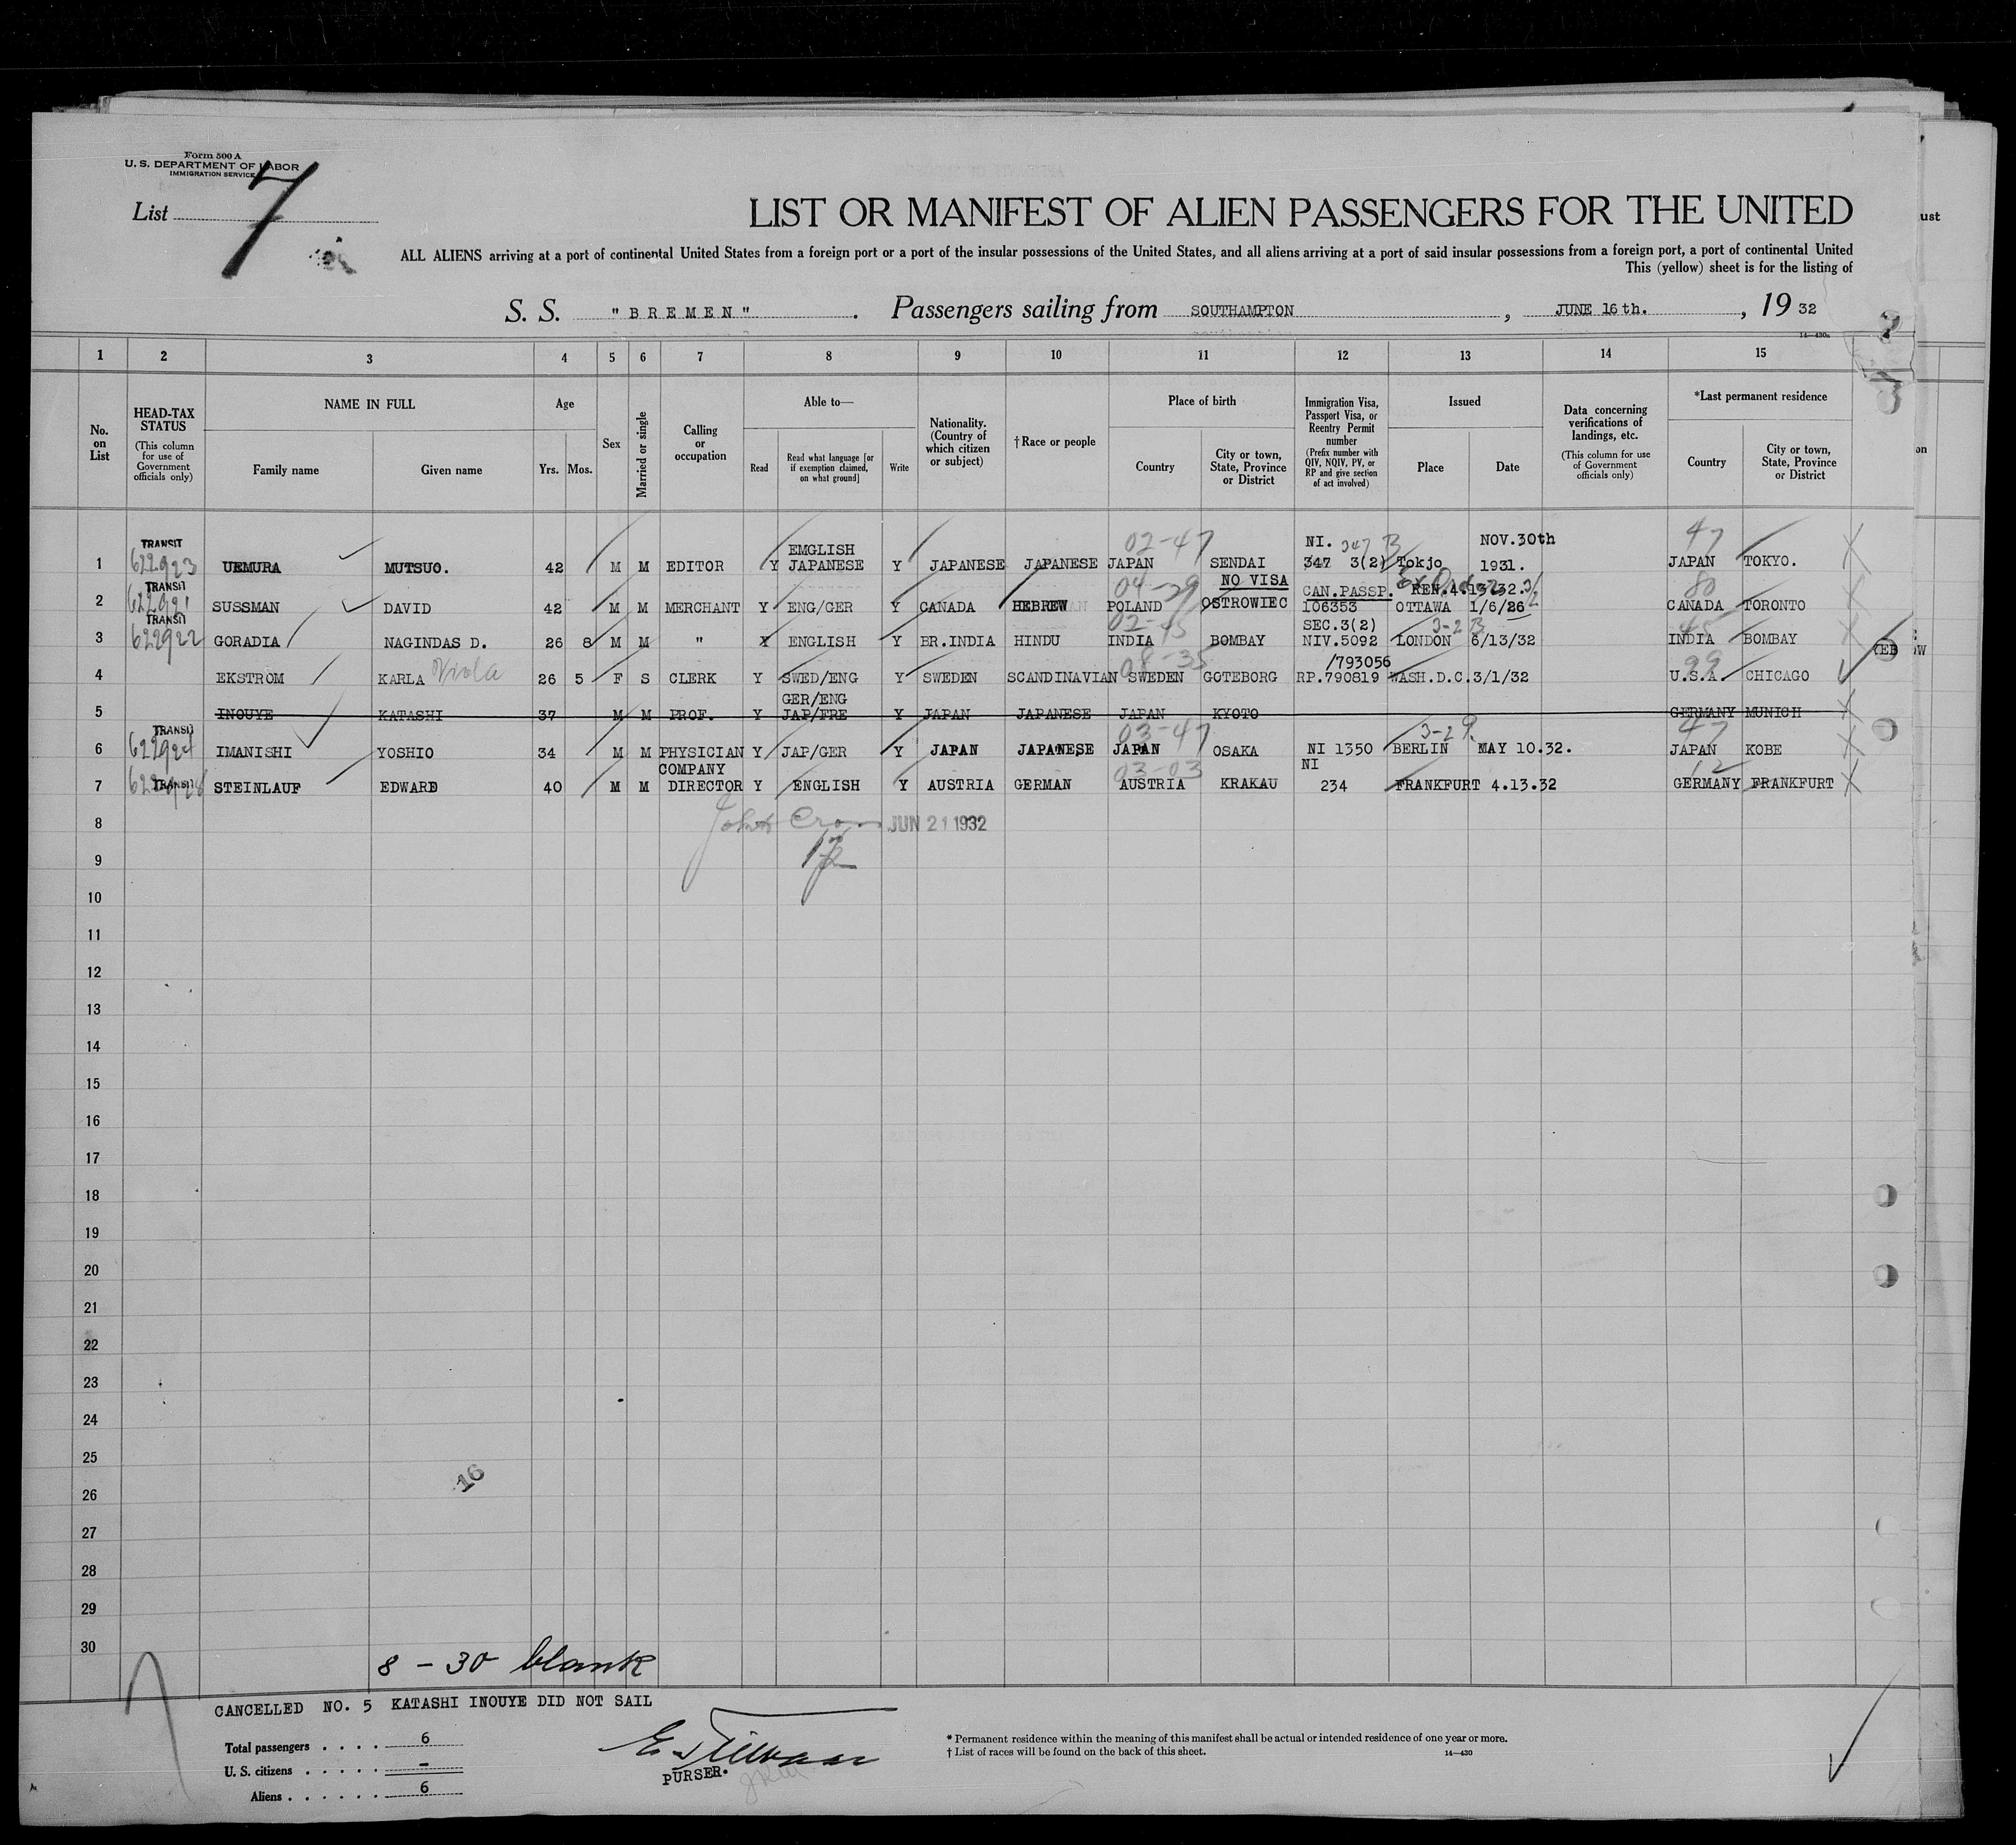 Form 500 A
U. S. DEPARTMENT OF LABOR
IMMIGRATION SERVICE
List 7
LIST OR MANIFEST OF ALIEN PASSENGERS FOR THE UNITED
ALL ALIENS arriving at a port of continental United States from a foreign port or a port of the insular possessions of the United States, and all aliens arriving at a port of said insular possessions from a foreign port, a port of continental United
This (yellow) sheet is for the listing of
S. S. "BREMEN". Passengers sailing from SOUTHAMPTON, JUNE 16th., 1932
14—430a
1 2 3 4 5 6 7 8 9 10 11 12 13 14 15
No. on List
HEAD-TAX STATUS
(This column for use of Government officials only)
NAME IN FULL
Family name
Given name
Age
Yrs. Mos.
Sex
Married or single
Calling or occupation
Able to—
Read
Read what language [or if exemption claimed, on what ground]
Write
Nationality. (Country of which citizen or subject)
†Race or people
Place of birth
Country
City or town, State, Province or District
Immigration Visa, Passport Visa, or Reentry Permit number
(Prefix number with QIV, NQIV, PV, or RP and give section of act involved)
Issued
Place
Date
Data concerning verifications of landings, etc.
(This column for use of Government officials only)
*Last permanent residence
Country
City or town, State, Province or District
TRANSIT EMGLISH 02-47 NI. 347 B NOV.30th 47
1 622923 UEMURA MUTSUO. 42 M M EDITOR Y JAPANESE Y JAPANESE JAPANESE JAPAN SENDAI 347 3(2) Tokjo 1931. JAPAN TOKYO.
TRANSIT 04-29 NO VISA CAN.PASSP. REN.4.13.32. 80
2 622921 SUSSMAN DAVID 42 M M MERCHANT Y ENG/GER Y CANADA HEBREW POLAND OSTROWIEC 106353 OTTAWA 1/6/26 CANADA TORONTO
TRANSIT 02-45 SEC.3(2) 3-2 B 45
3 622922 GORADIA NAGINDAS D. 26 8 M M " Y ENGLISH Y BR.INDIA HINDU INDIA BOMBAY NIV.5092 LONDON 6/13/32 INDIA BOMBAY
08-35 /793056 99
4 EKSTROM KARLA Viola 26 5 F S CLERK Y SWED/ENG Y SWEDEN SCANDINAVIAN SWEDEN GOTEBORG RP.790819 WASH.D.C. 3/1/32 U.S.A. CHICAGO
GER/ENG
5 INOUYE KATASHI 37 M M PROF. Y JAP/FRE Y JAPAN JAPANESE JAPAN KYOTO GERMANY MUNICH
TRANSIT 03-47 3-29 47
6 622924 IMANISHI YOSHIO 34 M M PHYSICIAN Y JAP/GER Y JAPAN JAPANESE JAPAN OSAKA NI 1350 BERLIN MAY 10.32. JAPAN KOBE
COMPANY 03-03 NI 12
7 TRANSIT STEINLAUF EDWARD 40 M M DIRECTOR Y ENGLISH Y AUSTRIA GERMAN AUSTRIA KRAKAU 234 FRANKFURT 4.13.32 GERMANY FRANKFURT
8 JUN 21 1932
9
10
11
12
13
14
15
16
17
18
19
20
21
22
23
24
25
16
26
27
28
29
30
8 - 30 blank
CANCELLED NO. 5 KATASHI INOUYE DID NOT SAIL
Total passengers . . . . 6
U. S. citizens . . . . . -
Aliens . . . . . . 6
PURSER.
* Permanent residence within the meaning of this manifest shall be actual or intended residence of one year or more.
† List of races will be found on the back of this sheet.
14—430